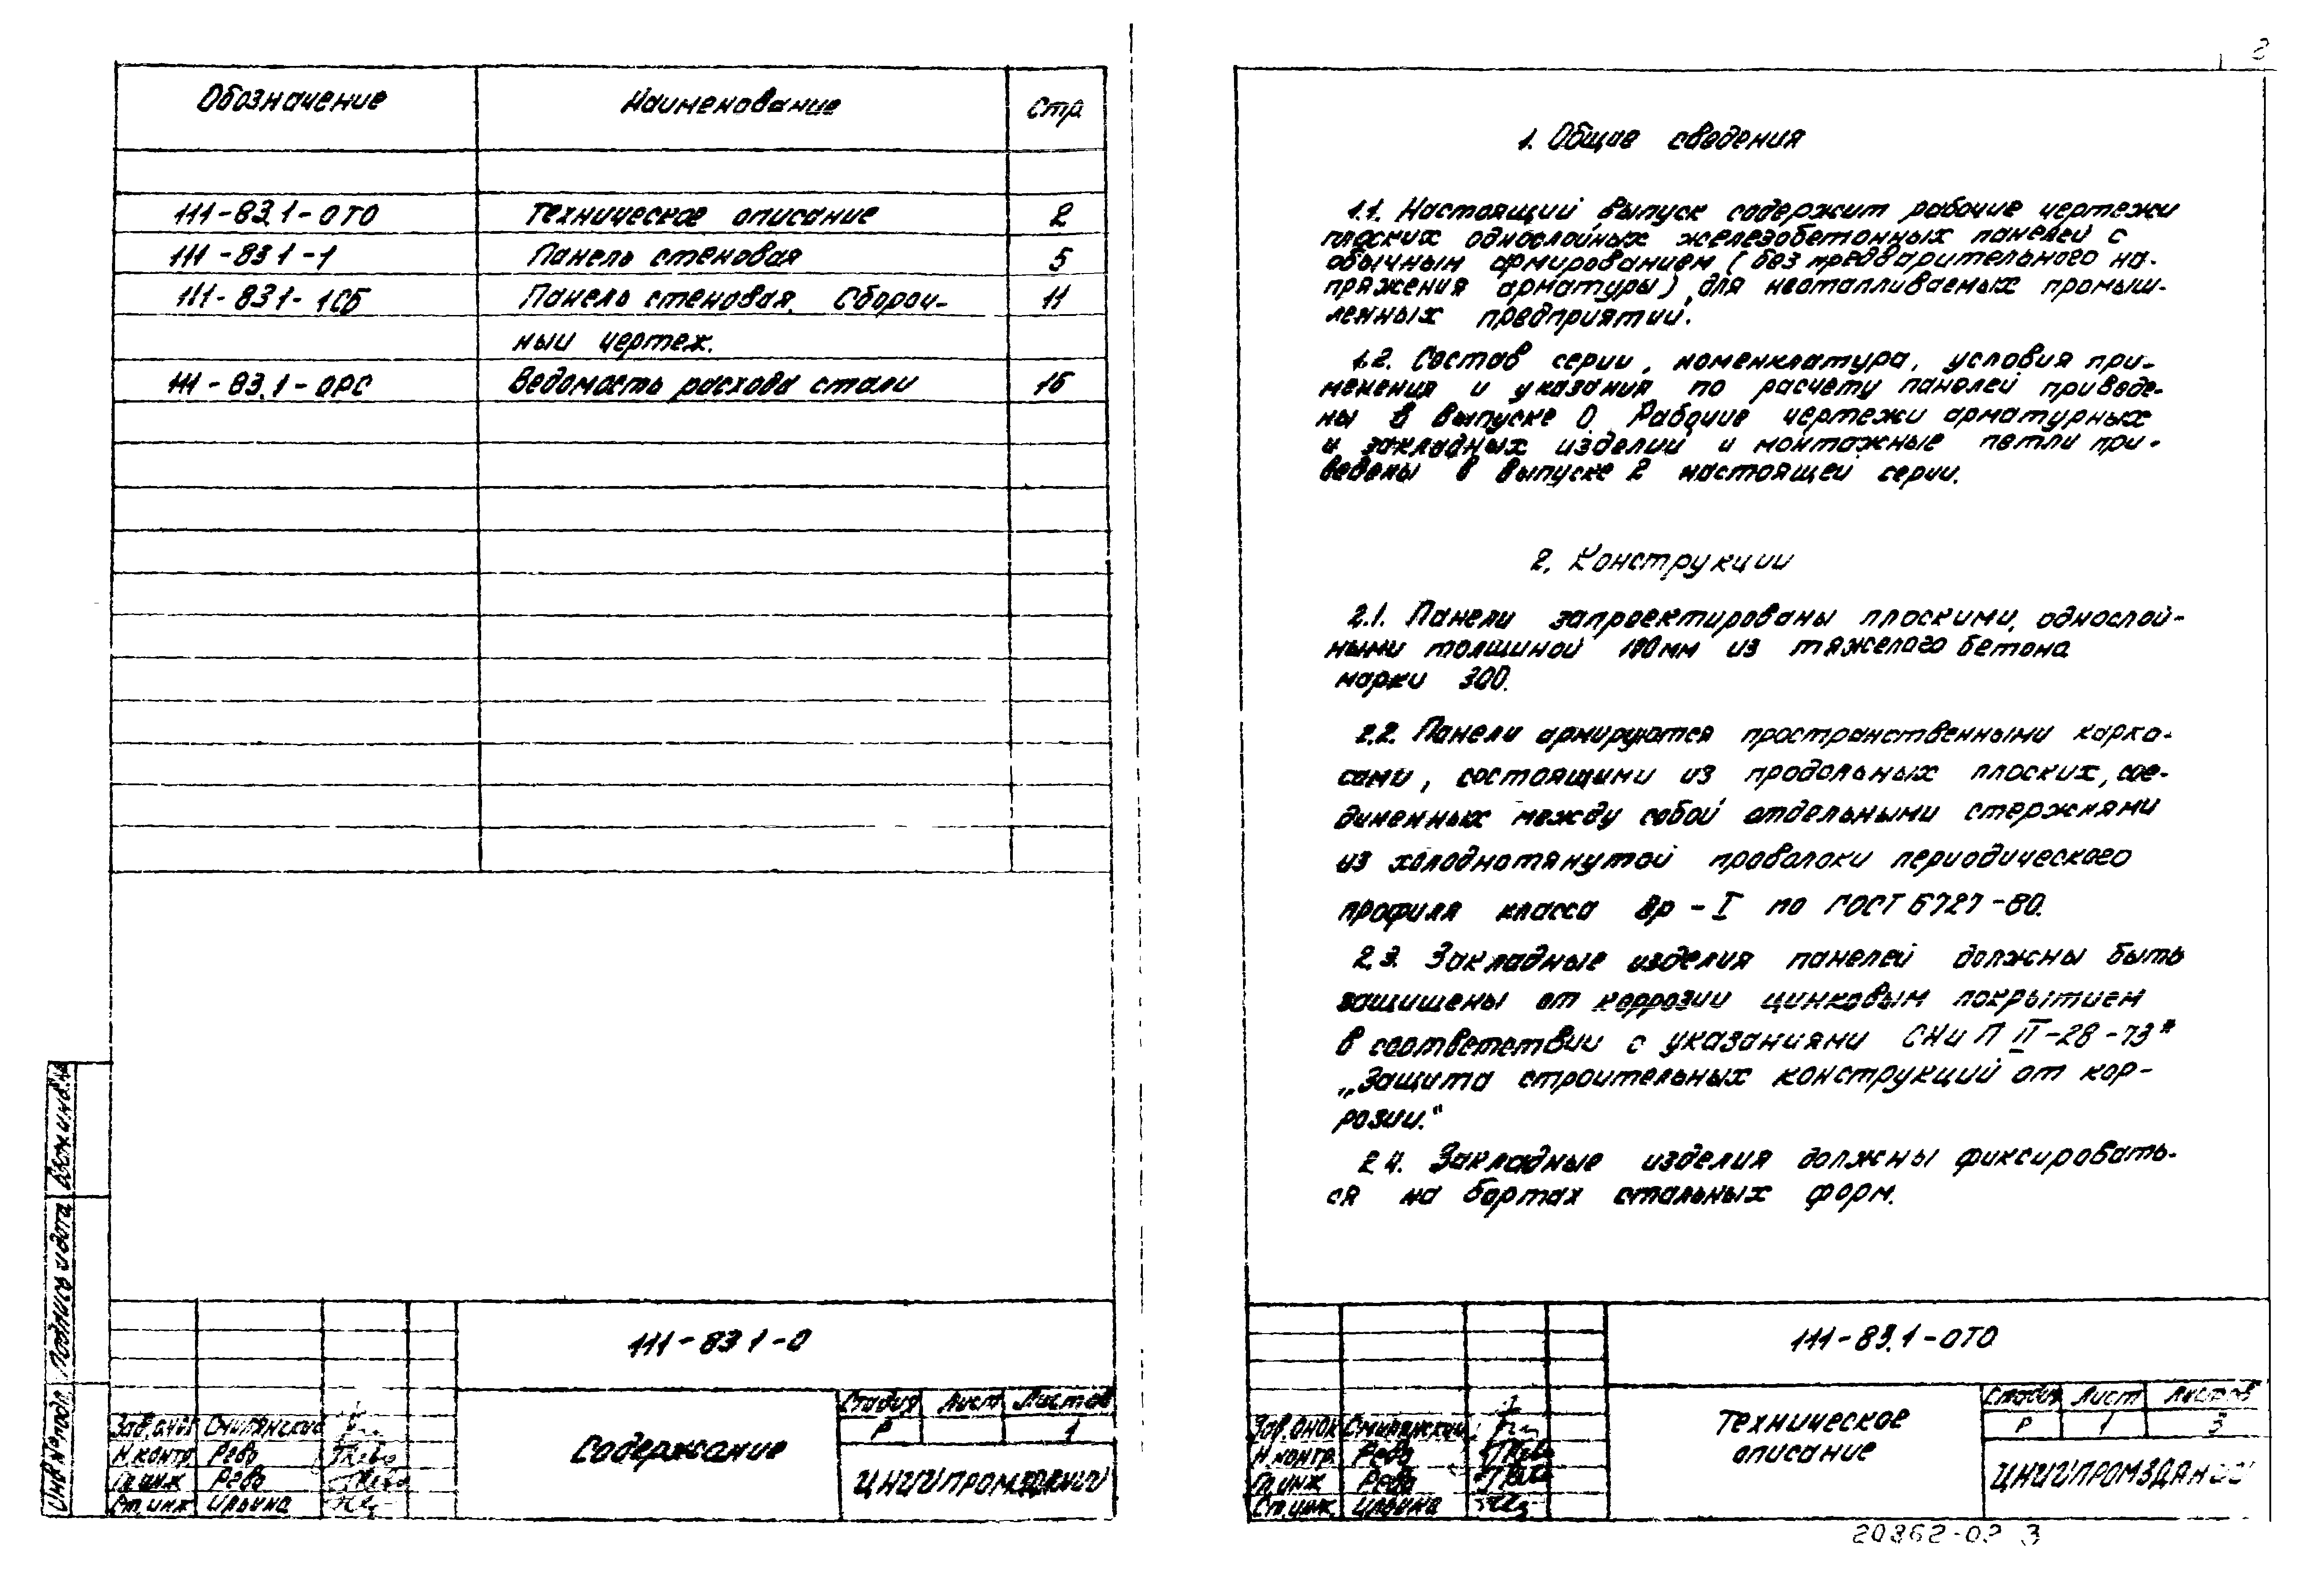 Обозначение Наименование Стр
111-83.1-0ТО Техническое описание 2
111-83 1-1 Панель стеновая 5
111-83 1-1СБ Панель стеновая. Сбороч- 11
ный чертеж.
111-83.1-0РС Ведомость расхода стали 16
Взам.инв.№
Подпись и дата
Инв№подл.
111-83 1-0
Содержание
Стадия Лист Листов
Р 1
ЦНИИПРОМЗДАНИЙ
Зав.онок Смилянский
Н.контр. Рево
Гл.инж Рево
Ст.инж Ильина
2
1. Общие сведения
1.1. Настоящий выпуск содержит рабочие чертежи
плоских однослойных железобетонных панелей с
обычным армированием (без предварительного на-
пряжения арматуры) для неотапливаемых промыш-
ленных предприятий.
1.2. Состав серии, номенклатура, условия при-
менения и указания по расчету панелей приведе-
ны в выпуске 0. Рабочие чертежи арматурных
и закладных изделий и монтажные петли при-
ведены в выпуске 2 настоящей серии.
2. Конструкции
2.1. Панели запроектированы плоскими, однослой-
ными толщиной мм из тяжелого бетона
марки 300.
2.2. Панели армируются пространственными карка-
сами, состоящими из продольных плоских, сое-
диненных между собой отдельными стержнями
из холоднотянутой проволоки периодического
профиля класса Вр-I по ГОСТ 6727-80.
2.3. Закладные изделия панелей должны быть
защищены от коррозии цинковым покрытием
в соответствии с указаниями СНиП II-28-73*
„Защита строительных конструкций от кор-
розии."
2.4. Закладные изделия должны фиксировать-
ся на бортах стальных форм.
111-83.1-0ТО
Техническое
описание
Стадия Лист Листов
Р 1 3
ЦНИИПРОМЗДАНИЙ
Зав.онок Смилянский
Н.контр. Рево
Гл.инж Рево
Ст.инж. Ильина
20362-02 3